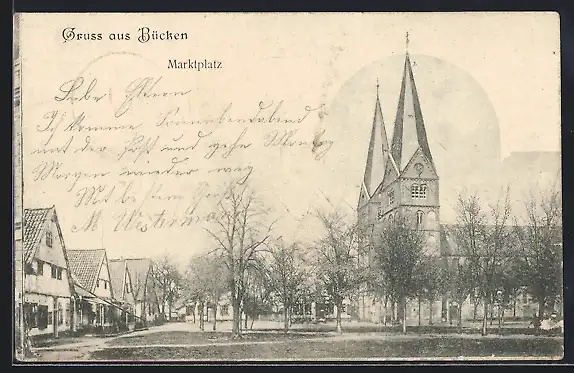 Gruss aus Bücken
Marktplatz
Liebe Eltern
Ich komme Sonnabendabend
mit der Post und gehe Montag
Morgen wieder weg
Mit bestem Gruß
M Westermann